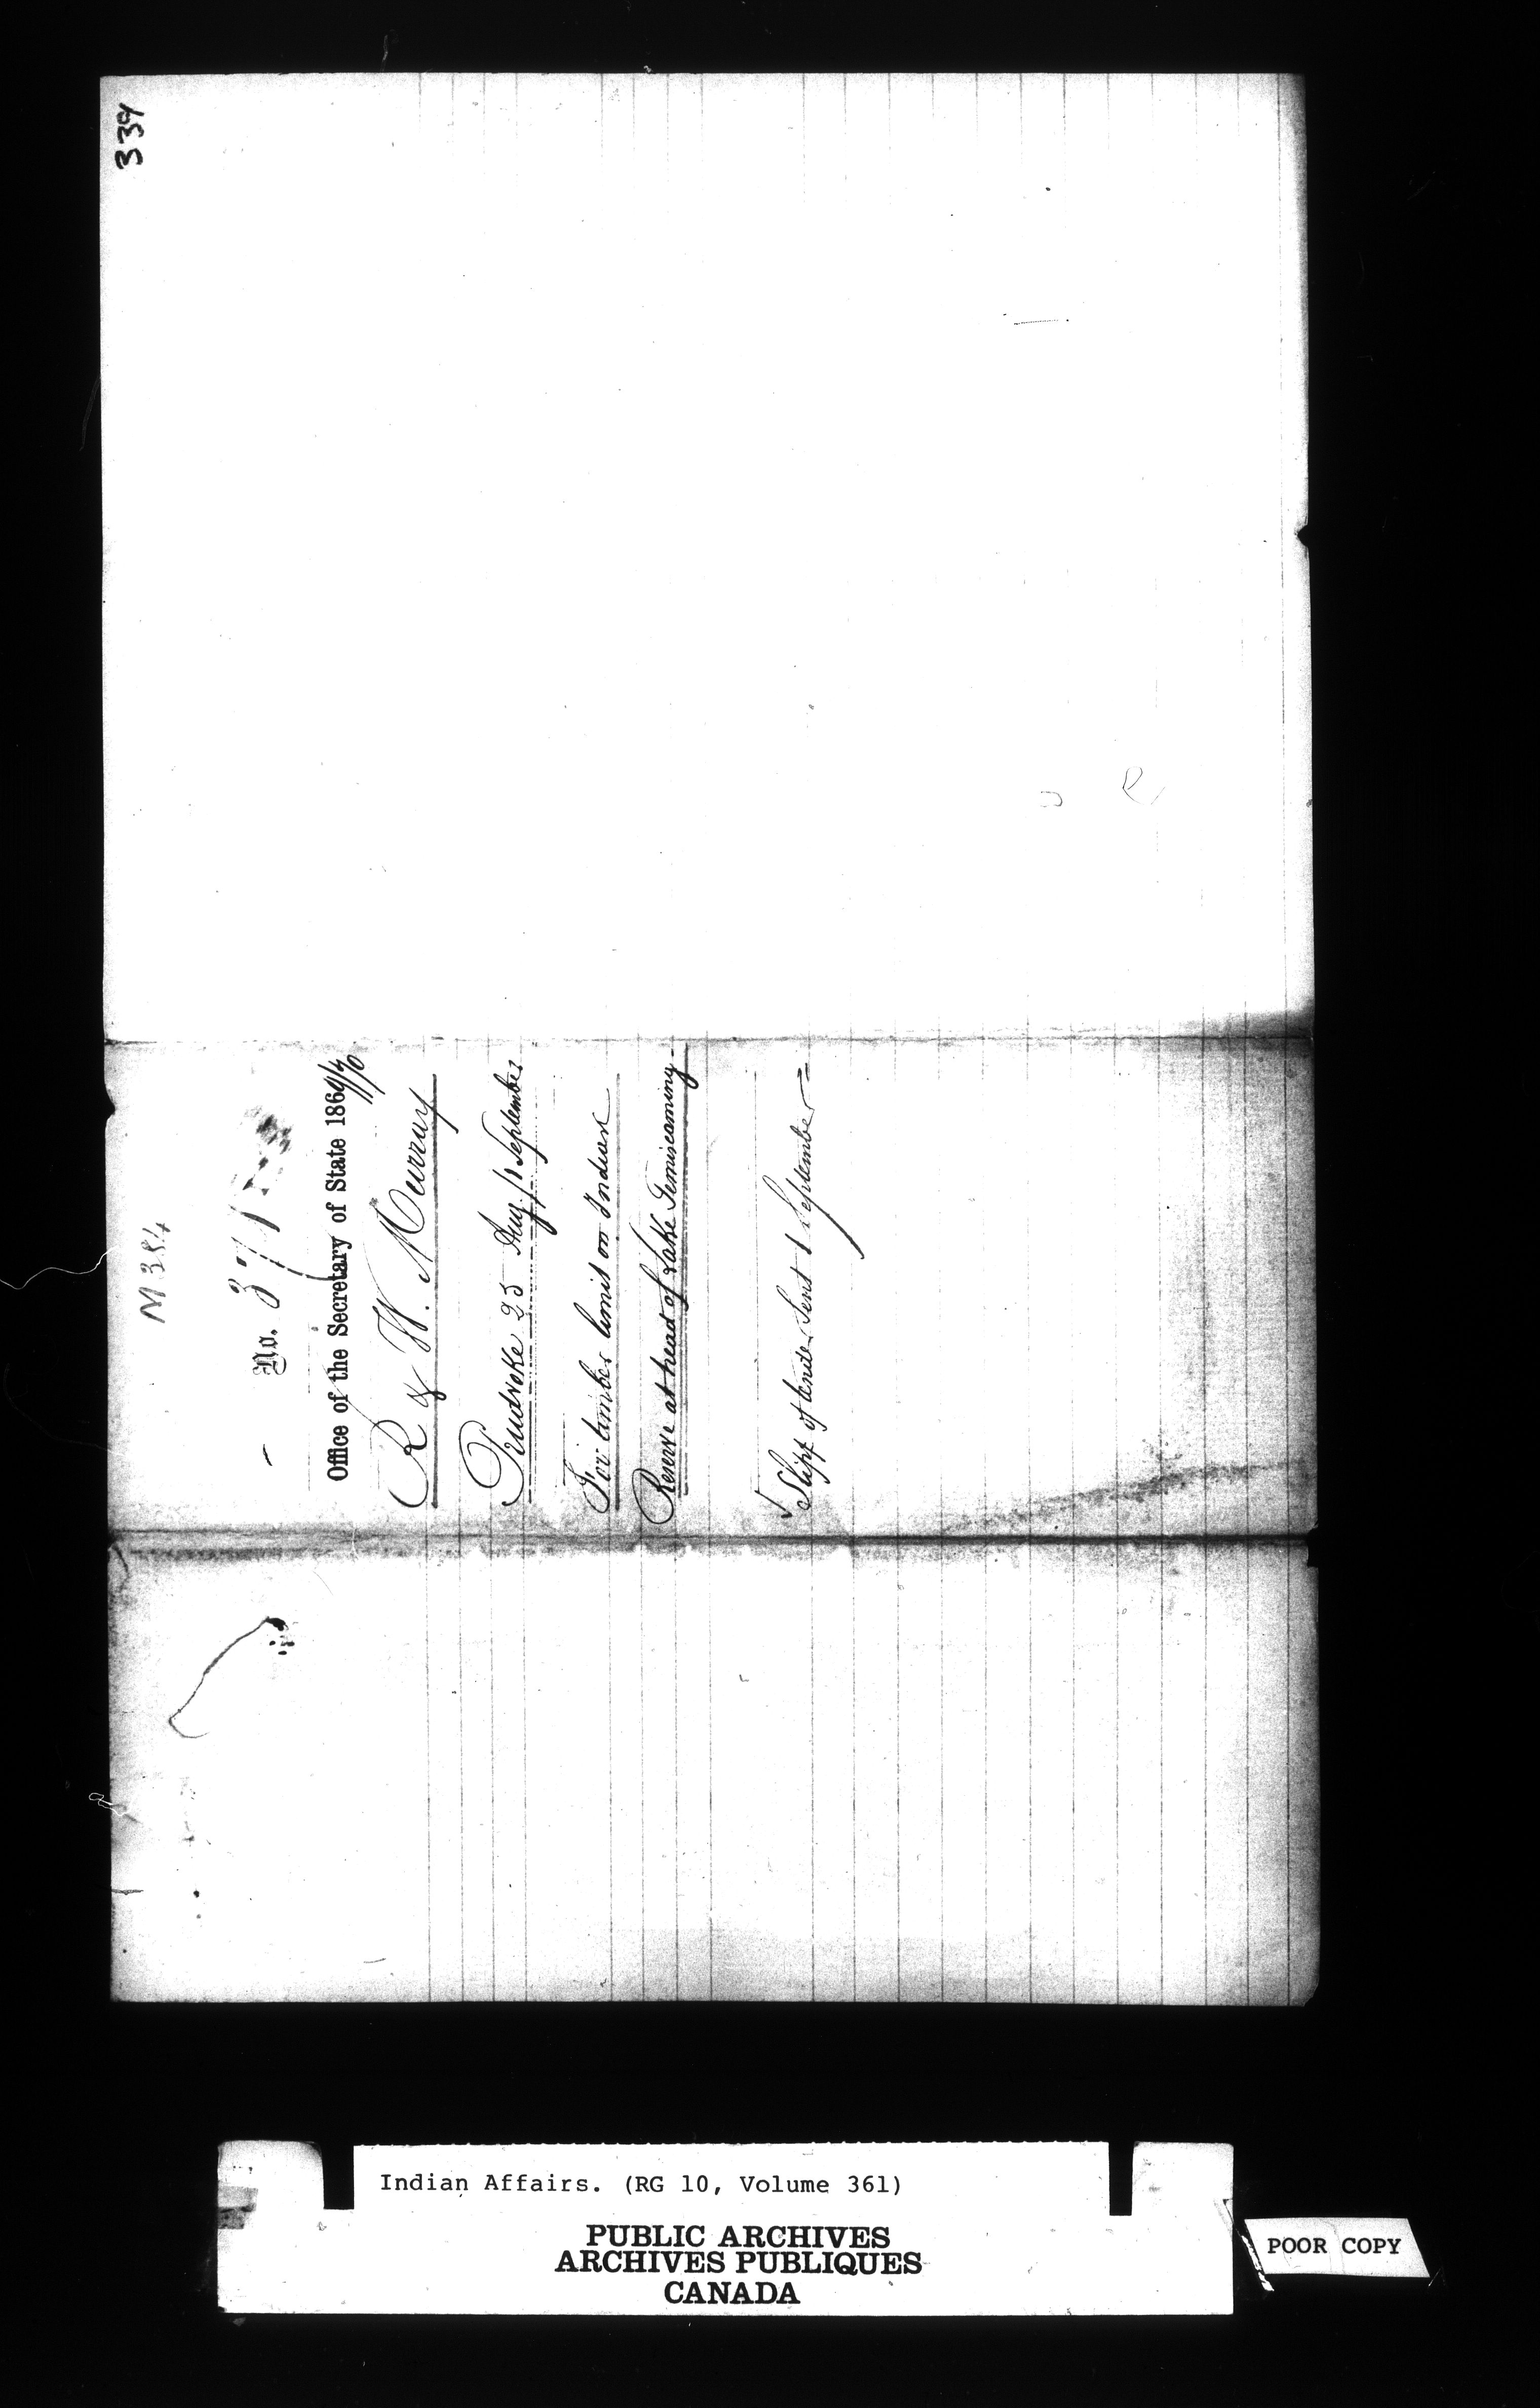 339
M 384
No. 371
Office of the Secretary of State 1869/70
R & W. Murray
Pembroke 25 Aug / 1 September
For timber limit on Indian
Reserve at head of Lake Temiscaming
Slip of tender sent 1 September
Indian Affairs. (RG 10, Volume 361)
PUBLIC ARCHIVES
ARCHIVES PUBLIQUES
CANADA
POOR COPY